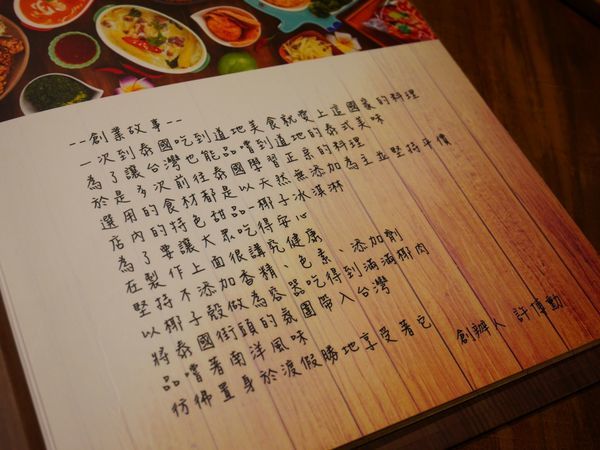 --創業故事--
一次到泰國吃到道地美食就愛上這國家的料理
為了讓台灣也能品嚐到道地的泰式美味
於是多次前往泰國學習正宗的料理
選用的食材都是以天然無添加為主並堅持平價
店內的特色甜品-椰子冰淇淋
為了要讓大眾吃得安心
在製作上面很講究健康
堅持不添加香精、色素、添加劑
以椰子殼做為容器吃得到滿滿椰肉
將泰國街頭的氛圍帶入台灣
品嚐著南洋風味
仿彿置身於渡假勝地享受著它
創辦人 許博勳